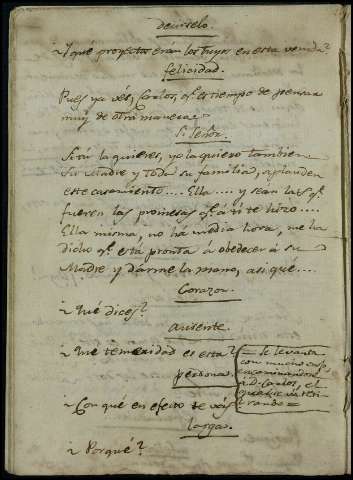 decirselo.
¿Y qué proyectos eràn los tuyos en esta venida?
felicidad.
Pues ya vés, Carlos, qᵉ. es tiempo de pensar
muy de otra manera.
Si Señor.
Si tú la quieres, yo la quiero tambien
Su Madre y toda su familia, aplauden
este casamiento.... Ella.... y sean las qᵉ.
fueren las promesas qᵉ. á tí te hizo....
Ella misma, no há média hora, me ha
dicho qᵉ. está pronta á obedecer á su
Madre y darme la mano, asi qué....
Corazon.
¿Qué dices?
ausente.
¿Qué temeridad es esta?
= Se levanta
con mucho
encaminandose
a D. Carlos, el
qual se va reti-
rando =
personas.
¿Con que en efecto te vás?
largas.
¿Porqué?